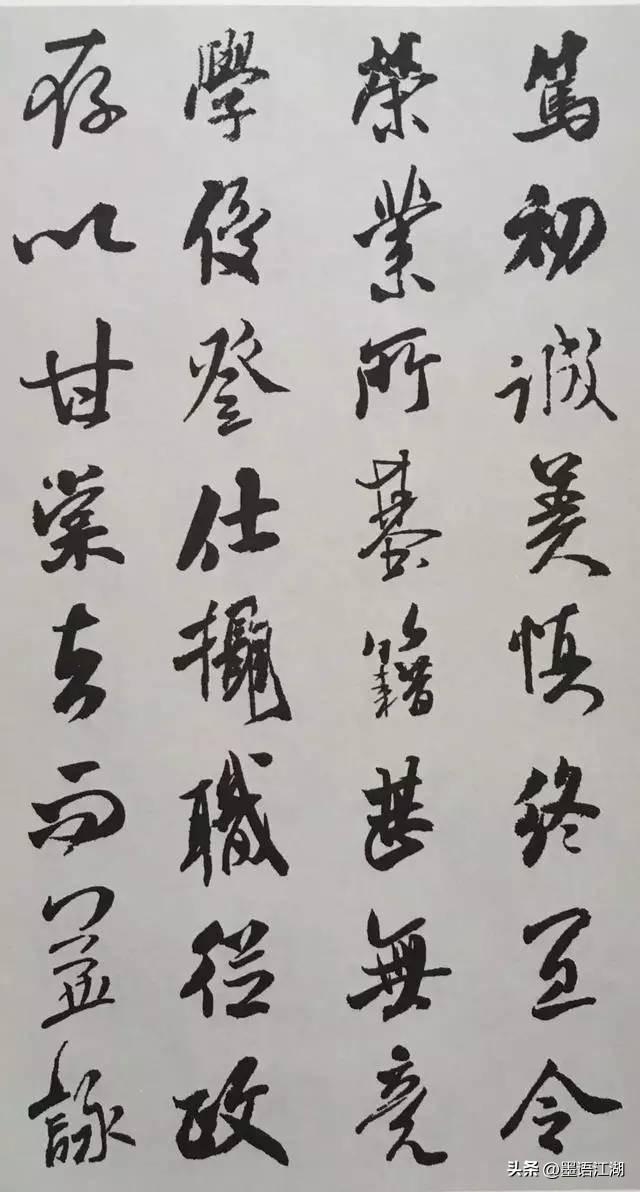 篤初誠美慎終宜令
榮業所基籍甚無竟
學優登仕攝職從政
存以甘棠去而益詠
头条 @墨语江湖